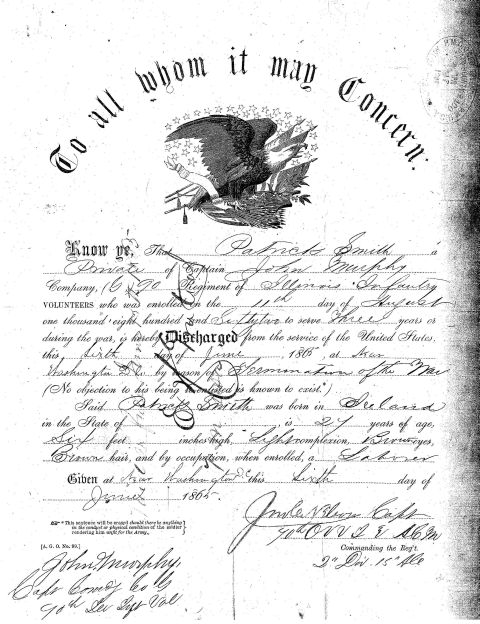 To all whom it may Concern:
Know ye, That Patrick Smith a
Private of Captain John Murphy
Company, (G) 90 Regiment of Illinois Infantry
VOLUNTEERS who was enrolled on the 11th day of August
one thousand eight hundred and Sixty two to serve Three years or
during the war, is hereby Discharged from the service of the United States,
this Sixth day of June 1865, at Near
Washington D.C. by reason of Termination of the War
(No objection to his being re-enlisted is known to exist.*)
Said Patrick Smith was born in Ireland
in the State of is 27 years of age,
Six feet inches high, Light complexion, Brown eyes,
Brown hair, and by occupation, when enrolled, a Laborer
Given at Near Washington this Sixth day of
June 1865.
*This sentence will be erased should there be anything
in the conduct or physical condition of the soldier
rendering him unfit for the Army.
[A. G. O. No. 99.]
Capt
90th
Commanding the Reg't.
2" Div. 15" A.C.
John Murphy
Capt Comdg Co G
90th Ill Vol